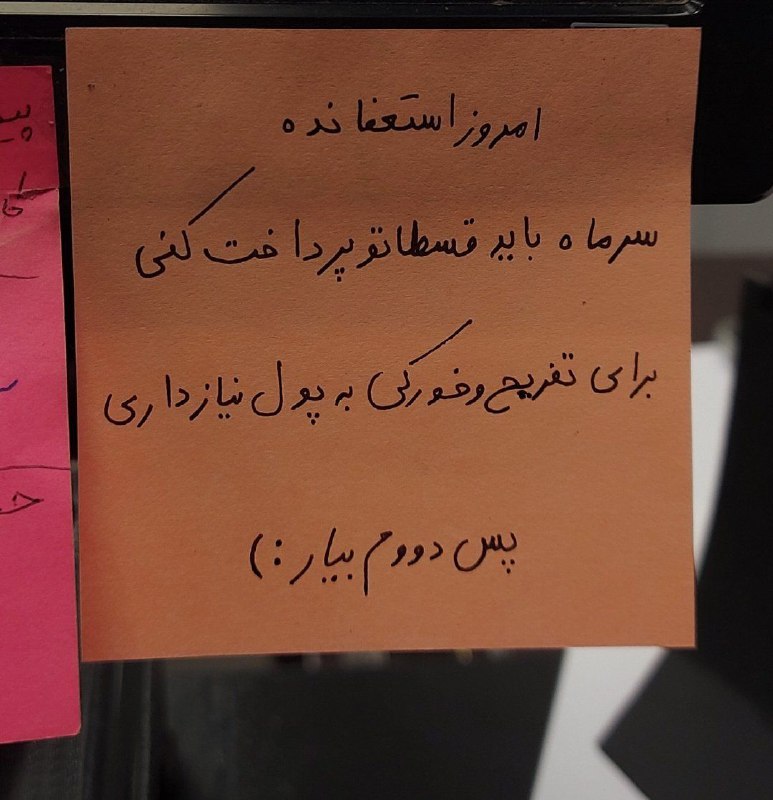 امروز استعفا نده
سر ماه باید قسطاتو پرداخت کنی
برای تفریح و خورکی به پول نیاز داری
پس دووم بیار :)